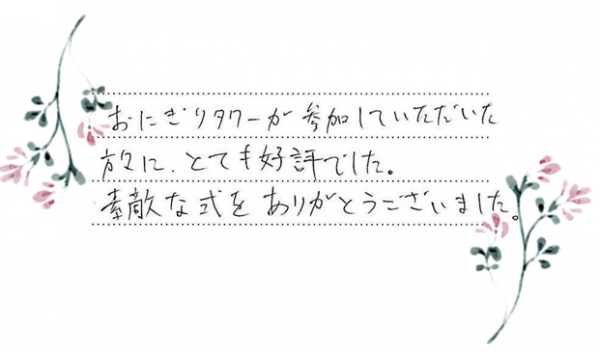 おにぎりタワーが参加していただいた
方に、とても好評でした。
素敵な式をありがとうございました。